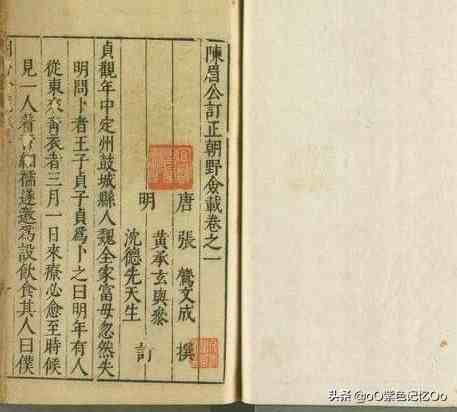 陳眉公訂正朝野僉載卷之一
唐 張 鷟文成 撰
明 黃承玄與參
沈德先天生 訂
貞觀年中定州鼓城縣人魏全家富母忽然失
明問卜者王子貞子貞爲卜之曰明年有人
從東來青衣者三月一日來療必愈至時候
見一人着 紬襦遂邀爲設飲食其人曰僕
头条 @oO紫色记忆Oo